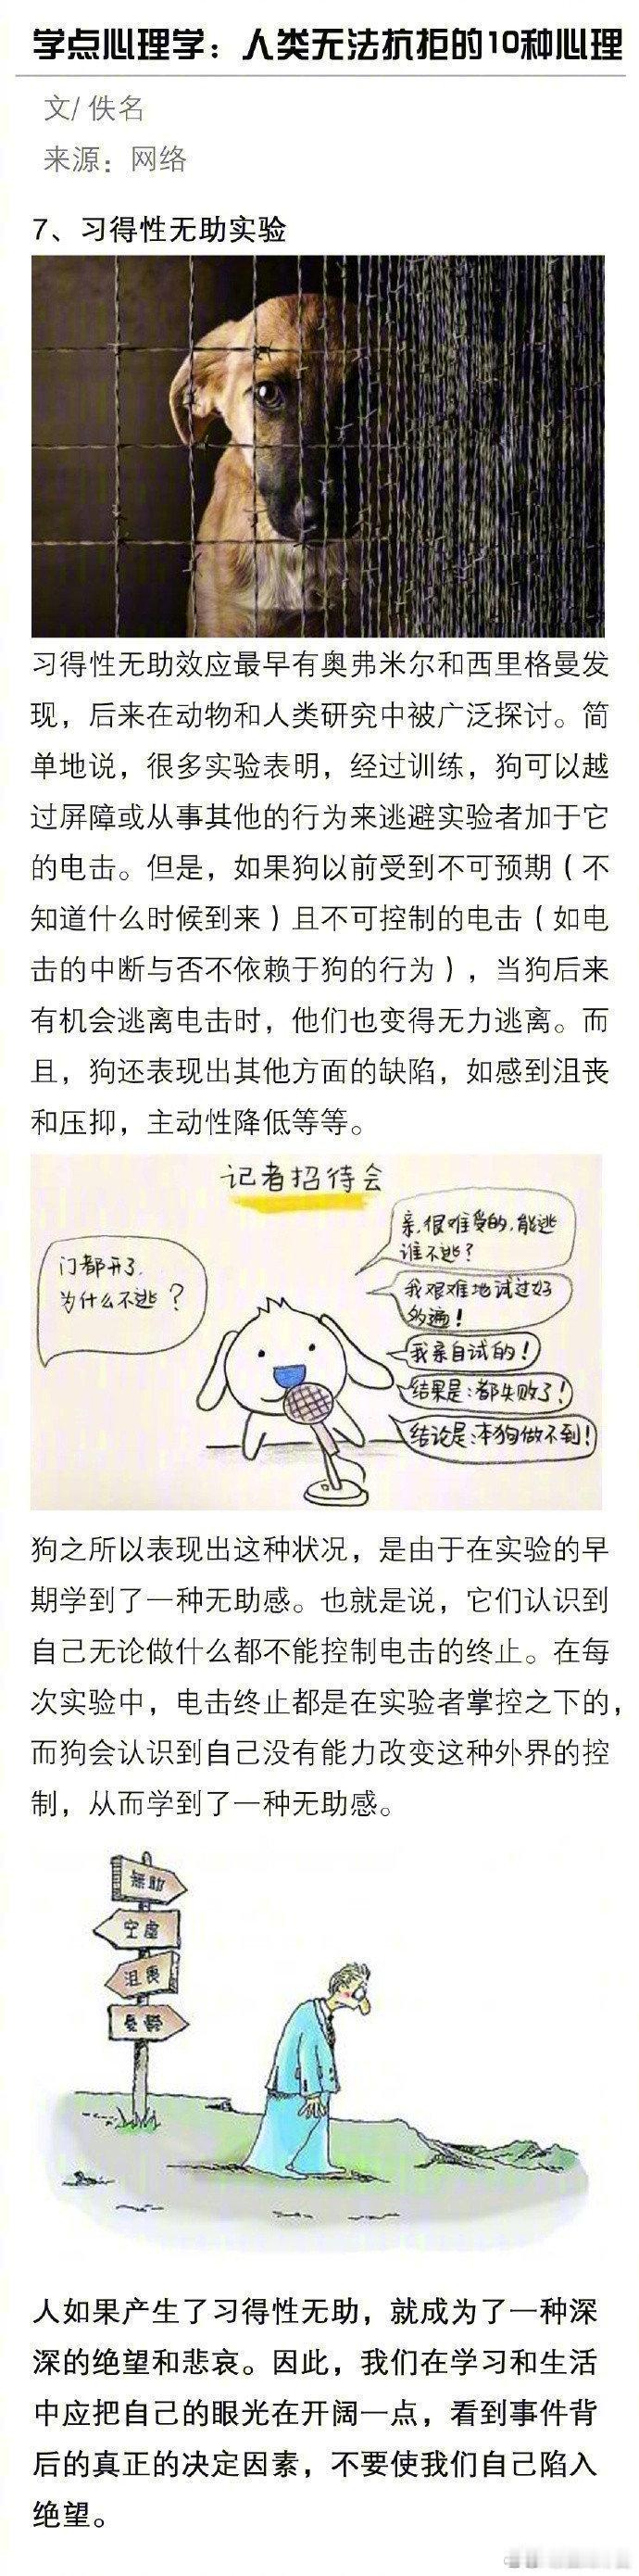 学点心理学：人类无法抗拒的10种心理
文/ 佚名
来源：网络
7、习得性无助实验
习得性无助效应最早有奥弗米尔和西里格曼发
现，后来在动物和人类研究中被广泛探讨。简
单地说，很多实验表明，经过训练，狗可以越
过屏障或从事其他的行为来逃避实验者加于它
的电击。但是，如果狗以前受到不可预期（不
知道什么时候到来）且不可控制的电击（如电
击的中断与否不依赖于狗的行为），当狗后来
有机会逃离电击时，他们也变得无力逃离。而
且，狗还表现出其他方面的缺陷，如感到沮丧
和压抑，主动性降低等等。
记者招待会
门都开了，
为什么不逃？
亲，很难受的，能逃
谁不逃？
我艰难地试过好
多遍！
我亲自试的！
结果是：都失败了！
结论是：本狗做不到！
狗之所以表现出这种状况，是由于在实验的早
期学到了一种无助感。也就是说，它们认识到
自己无论做什么都不能控制电击的终止。在每
次实验中，电击终止都是在实验者掌控之下的，
而狗会认识到自己没有能力改变这种外界的控
制，从而学到了一种无助感。
無助
空虛
沮喪
人如果产生了习得性无助，就成为了一种深
深的绝望和悲哀。因此，我们在学习和生活
中应把自己的眼光在开阔一点，看到事件背
后的真正的决定因素，不要使我们自己陷入
绝望。